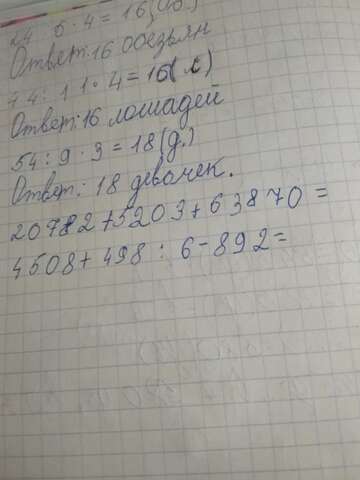 24 : 6 · 4 = 16 (об.)
Ответ: 16 обезьян
44 : 11 · 4 = 16 (л)
Ответ: 16 лошадей
54 : 9 · 3 = 18 (д.)
Ответ: 18 девочек.
20982 + 5203 + 63870 =
4508 + 498 : 6 - 892 =